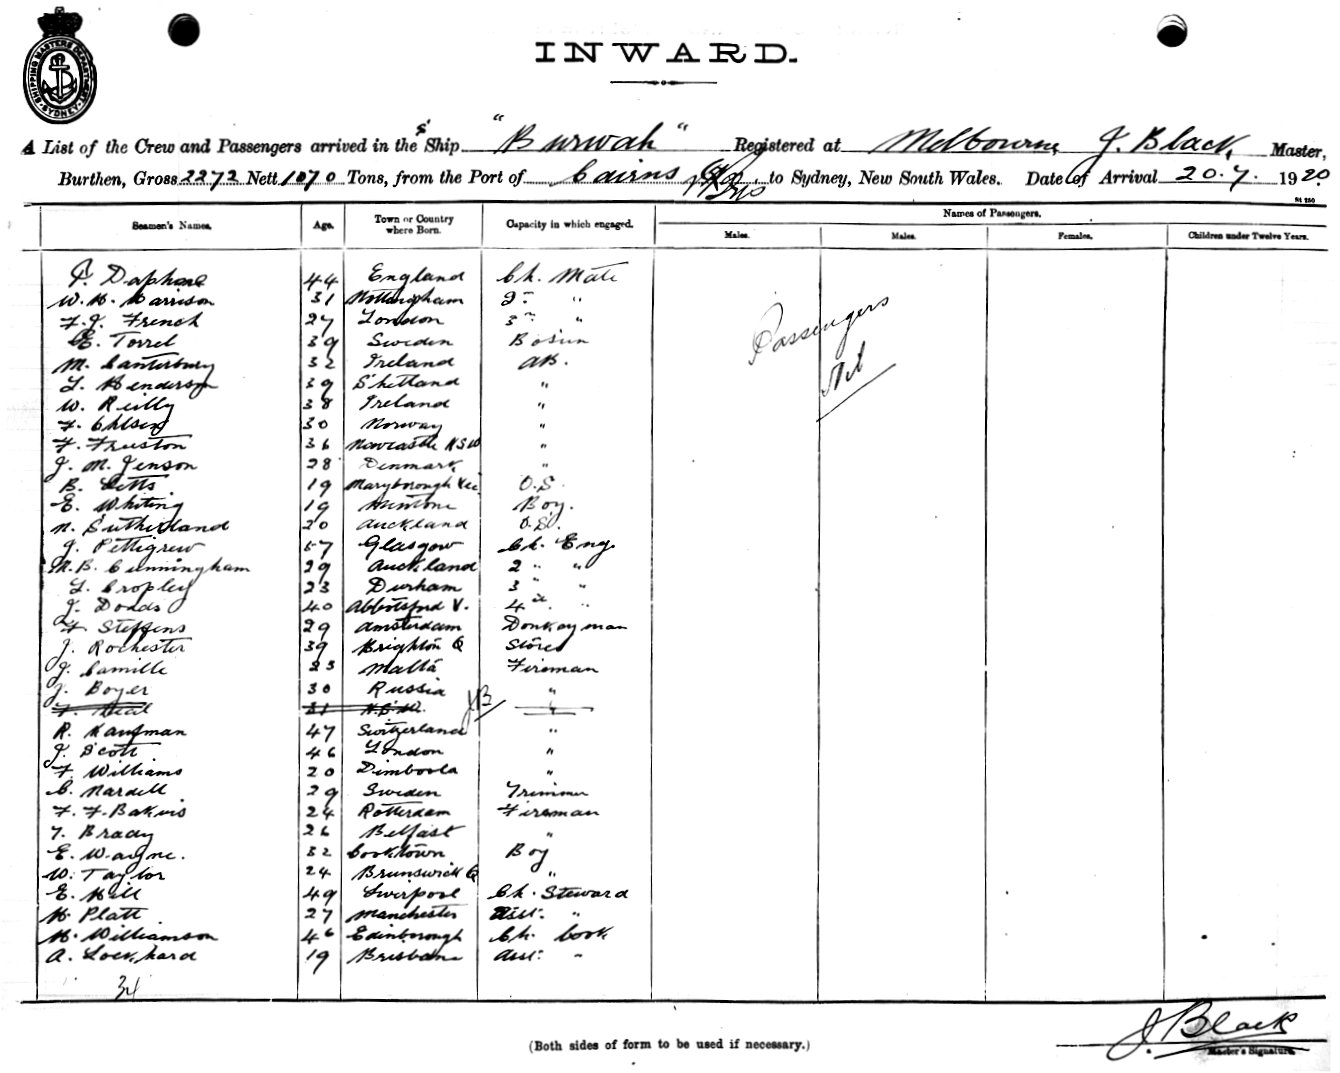 SHIPPING MASTERS DEPARTMENT SYDNEY
INWARD.
A List of the Crew and Passengers arrived in the S' Ship "Burwah" Registered at Melbourne J. Black, Master,
Burthen, Gross 2272 Nett 1070 Tons, from the Port of Cairns to Sydney, New South Wales. Date of Arrival 20.7.1920.
Seamen's Names. Age. Town or Country where Born. Capacity in which engaged. Names of Passengers.
Males. Males. Females. Children under Twelve Years.
44 England Ch. Mate
W. H. Harrison 31 Nottingham 2nd "
F. J. French 27 London 3rd "
E. Torrel 39 Sweden Bosun
M. Canterbury 32 Ireland AB.
L. Henderson 39 Shetland "
W. Reilly 38 Ireland "
F. Ohlsen 30 Norway "
F. Fruston 36 Newcastle NSW "
J. M. Jenson 28 Denmark "
B. Letts 19 Maryborough Vic O.S.
E. Whiting 19 Boy.
N. Sutherland 20 Auckland O.S.
J. Pettigrew 57 Glasgow Ch. Eng
M. B. Cunningham 29 Auckland 2 " "
L. Cropley 23 Durham 3 " "
J. Dodds 40 Abbotsford V. 4th "
F. Steffens 29 Amsterdam Donkeyman
J. Rochester 39 Brighton Q Stores
J. Camille 23 Malta Fireman
J. Boyer 30 Russia "
31 N.S.W. JB "
R. Kaufman 47 Switzerland "
J. Scott 46 London "
F. Williams 20 Dimboola "
C. Nardell 29 Sweden Trimmer
F. F. Bakvis 24 Rotterdam Fireman
T. Brady 26 Belfast "
E. Wayne. 32 Cooktown Boy
W. Taylor 24 Brunswick Q "
E. Hill 49 Liverpool Ch. Steward
H. Platt 27 Manchester Asst. "
H. Williamson 46 Edinborough Ch. Cook
A. Lockhard 19 Brisbane Asst. "
34
Passengers
Nil
J Black
Master's Signature.
(Both sides of form to be used if necessary.)